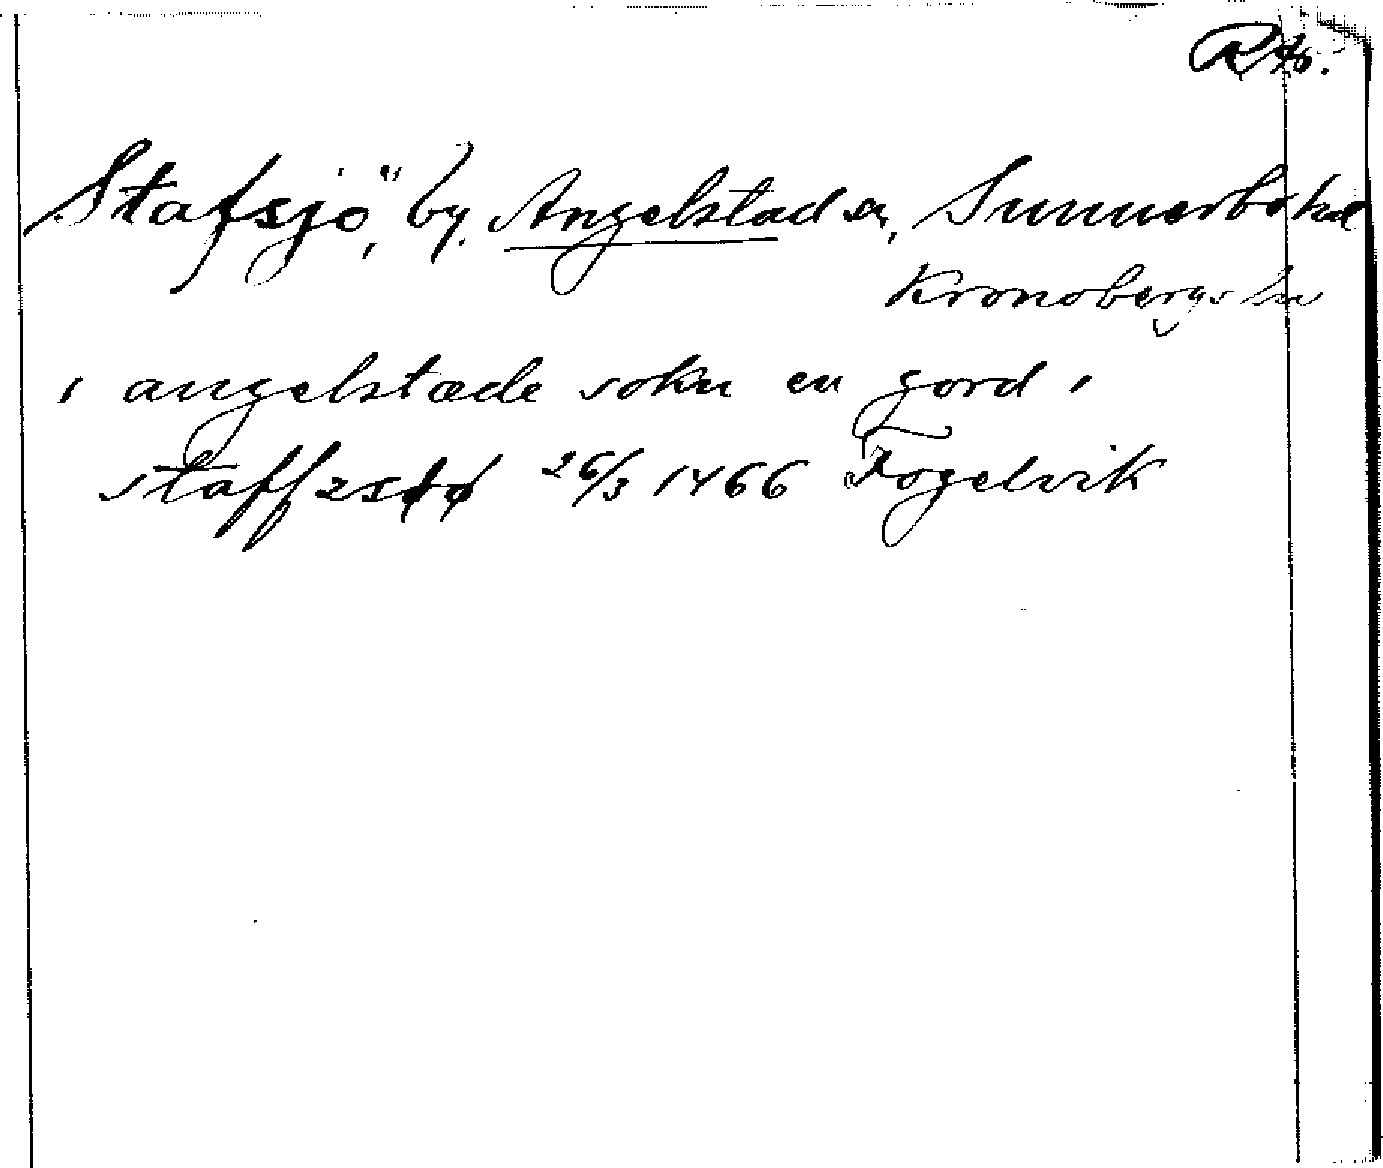 RAp.
Stafsjö, by. Angelstad sn, Sunnerbo hd
Kronobergs län
i angelstade sokn en gord i
staffzsiø 26/3 1466 Fogelvik